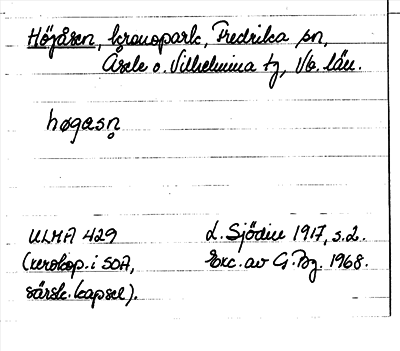 Höjåsen, kronopark, Fredrika sn,
Åsele o. Vilhelmina tg, Vb. län.
høgæsn̥
ULMA 429 L. Sjödin 1917, s. 2.
(xerokop. i SOA, Exc. av G. Bg. 1968.
särsk. kapsel).